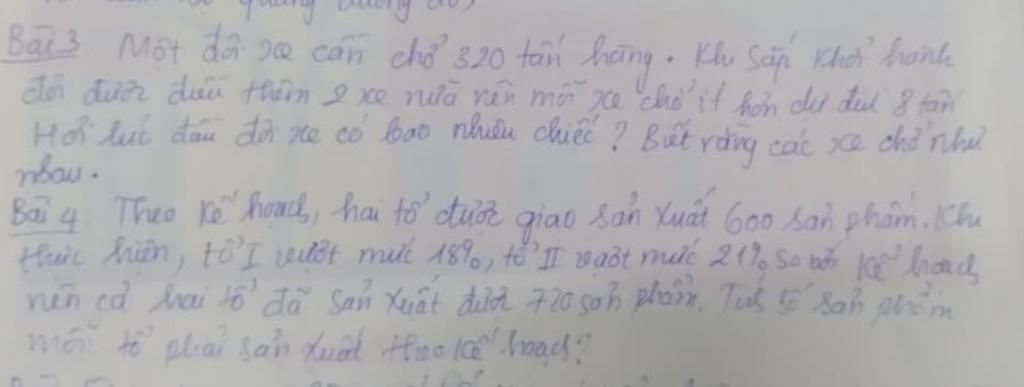 quãng đường đó
Bài 3 Một đội xe cần chở 320 tấn hàng. Khi sắp khởi hành
đội được điều thêm 2 xe nữa nên mỗi xe chở ít hơn dự định 8 tấn
Hỏi lúc đầu đội xe có bao nhiêu chiếc? Biết rằng các xe chở như
nhau.
Bài 4: Theo kế hoạch, hai tổ được giao sản xuất 600 sản phẩm. Khi
thực hiện, tổ I vượt mức 18%, tổ II vượt mức 21% so với kế hoạch
nên cả hai tổ đã sản xuất được 720 sản phẩm. Tính số sản phẩm
mỗi tổ phải sản xuất theo kế hoạch?